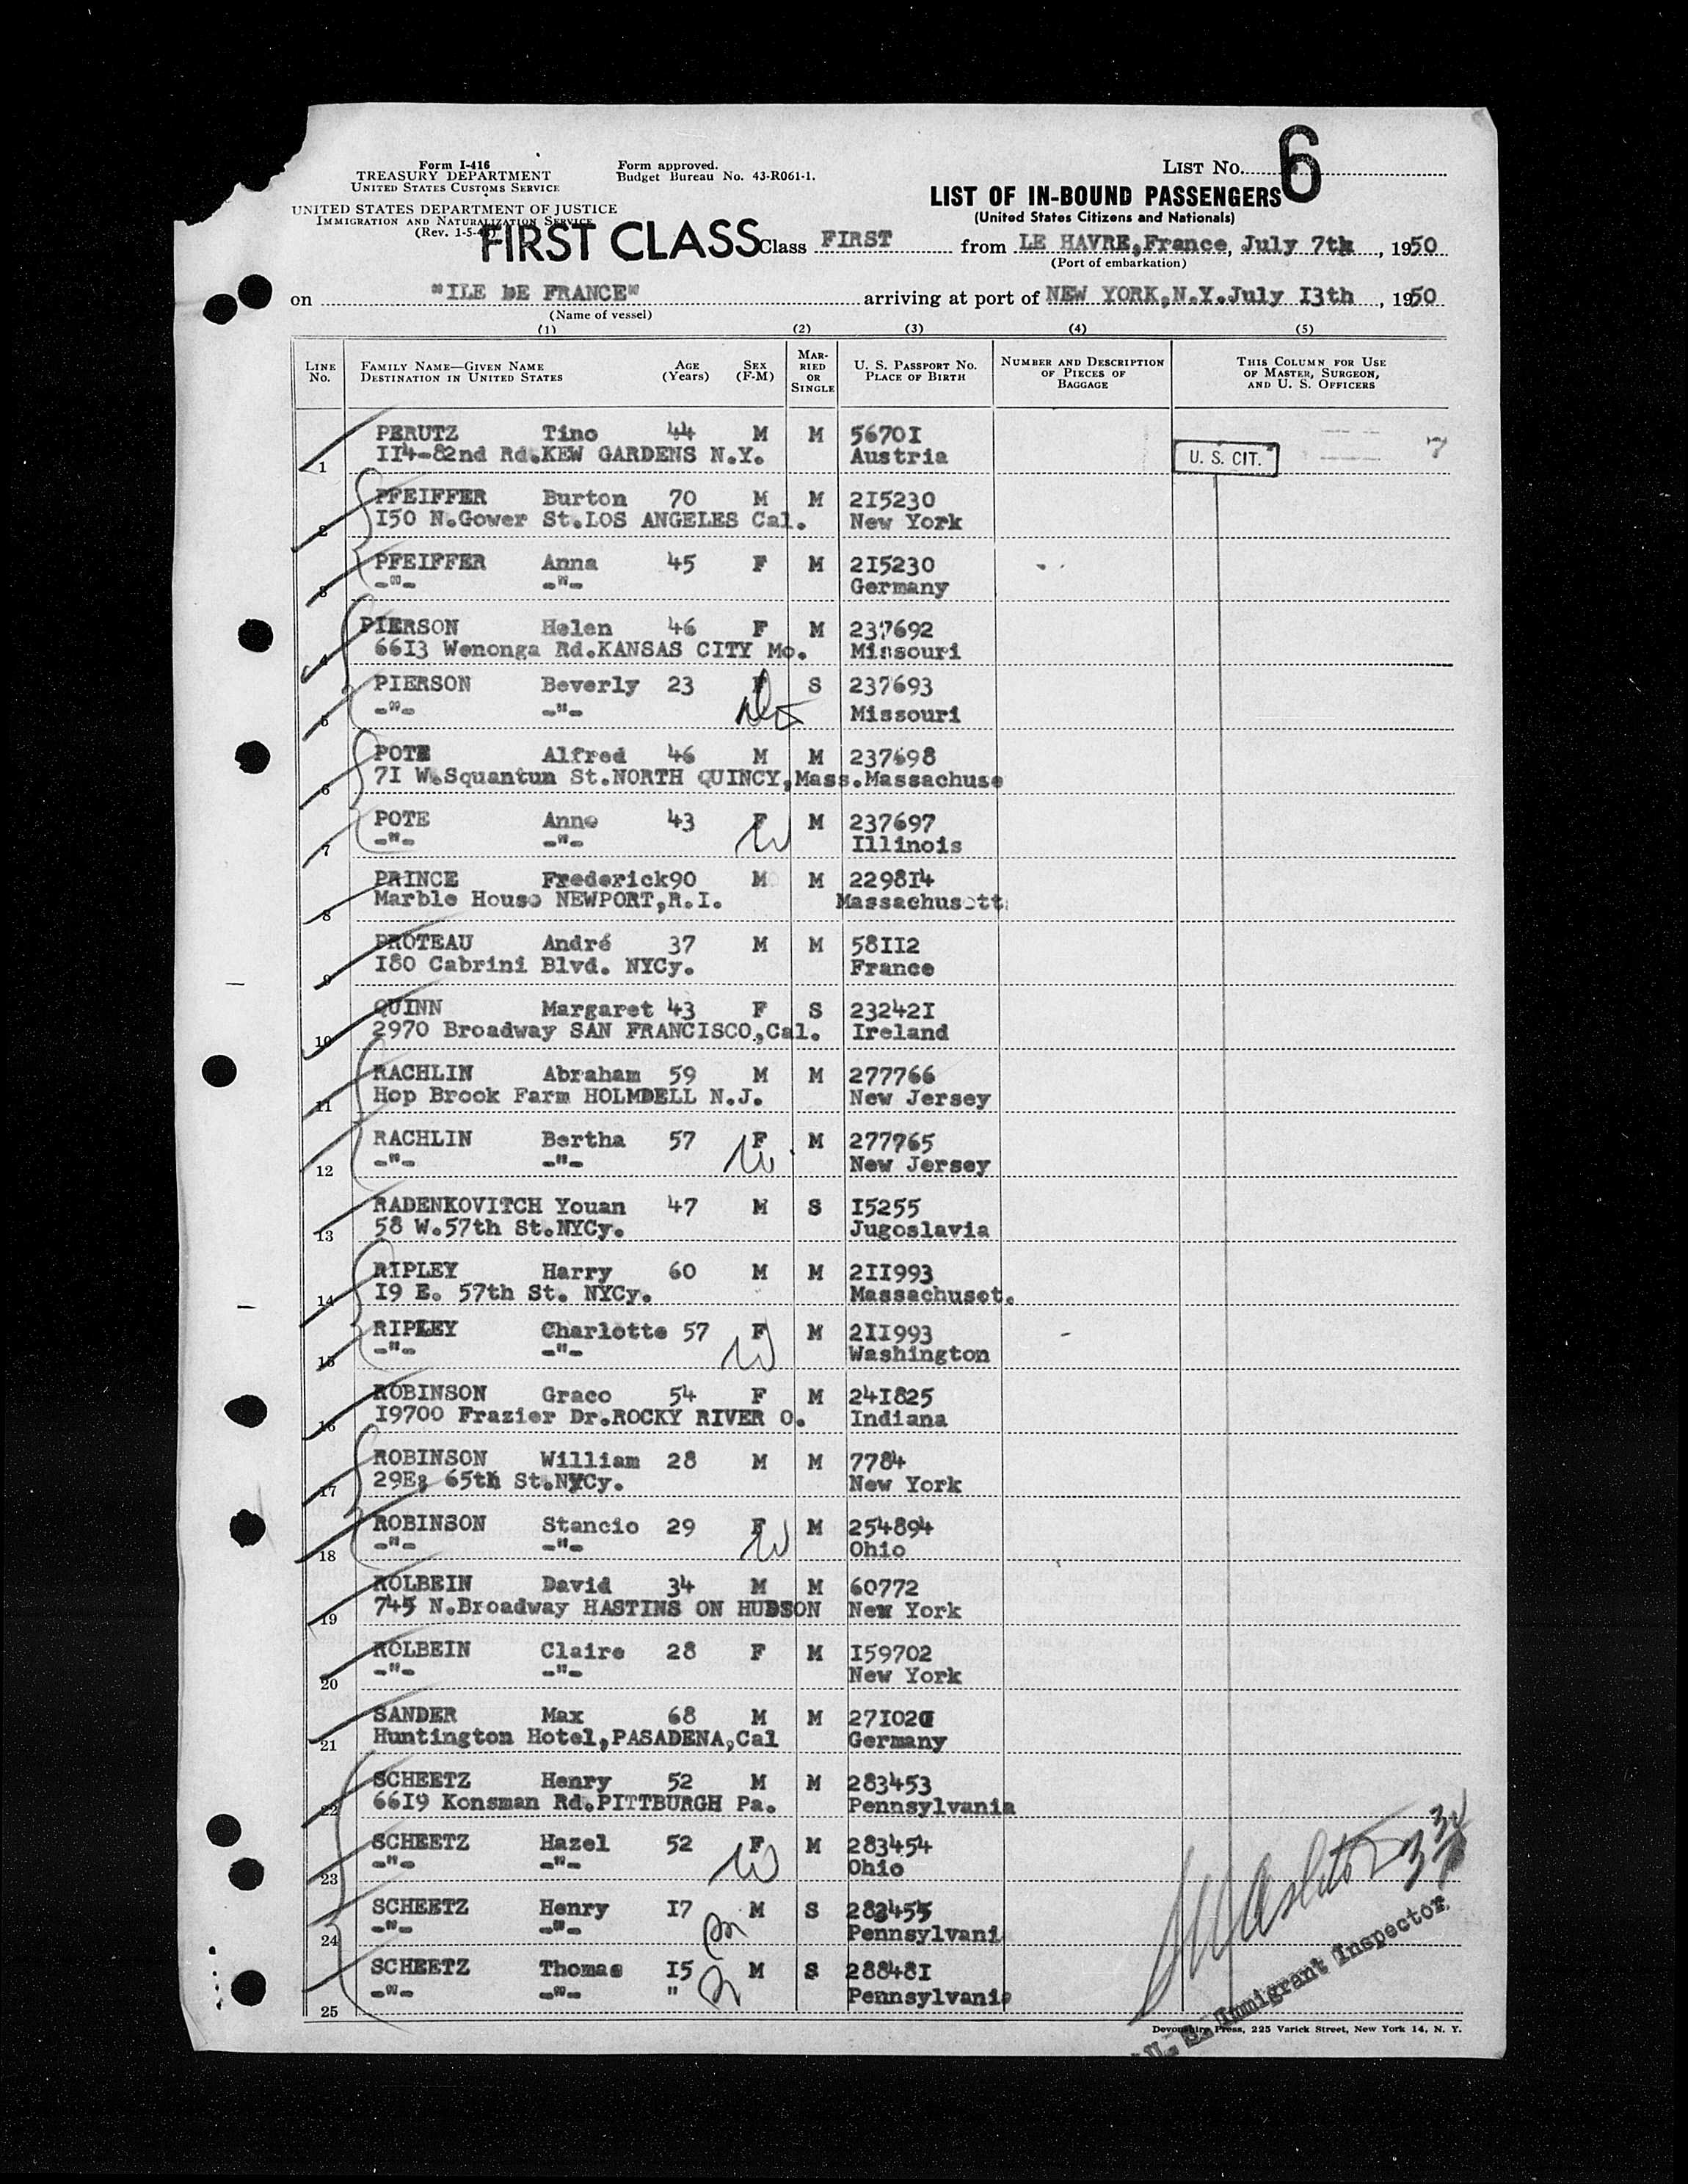 Form I-416
TREASURY DEPARTMENT
UNITED STATES CUSTOMS SERVICE
UNITED STATES DEPARTMENT OF JUSTICE
IMMIGRATION AND NATURALIZATION SERVICE
(Rev. 1-5-
Form approved.
Budget Bureau No. 43-R061-1.
LIST NO. 6
LIST OF IN-BOUND PASSENGERS
(United States Citizens and Nationals)
FIRST CLASS
Class FIRST from LE HAVRE,France, July 7th, 1950
(Port of embarkation)
on "ILE DE FRANCE" arriving at port of NEW YORK,N.Y.July I3th, 1950
(Name of vessel)
(1) (2) (3) (4) (5)
LINE No. FAMILY NAME—GIVEN NAME DESTINATION IN UNITED STATES AGE (Years) SEX (F-M) MARRIED OR SINGLE U. S. PASSPORT NO. PLACE OF BIRTH NUMBER AND DESCRIPTION OF PIECES OF BAGGAGE THIS COLUMN FOR USE OF MASTER, SURGEON, AND U. S. OFFICERS
PERUTZ Tino 44 M M 5670I 7
1 II4-82nd Rd.KEW GARDENS N.Y. Austria U. S. CIT.
PFEIFFER Burton 70 M M 2I5230
2 I50 N.Gower St.LOS ANGELES Cal. New York
PFEIFFER Anna 45 F M 2I5230
3 -"- -"- Germany
PIERSON Helen 46 F M 237692
4 66I3 Wenonga Rd.KANSAS CITY Mo. Missouri
PIERSON Beverly 23 S 237693
5 -"- -"- Missouri
POTE Alfred 46 M M 237698
6 7I W.Squantum St.NORTH QUINCY,Mass.Massachuse
POTE Anne 43 F M 237697
7 -"- -"- Illinois
PRINCE Frederick90 M M 2298I4
8 Marble House NEWPORT,R.I. Massachusett
PROTEAU André 37 M M 58II2
9 I80 Cabrini Blvd. NYCy. France
QUINN Margaret 43 F S 23242I
10 2970 Broadway SAN FRANCISCO,Cal. Ireland
RACHLIN Abraham 59 M M 277766
11 Hop Brook Farm HOLMDELL N.J. New Jersey
RACHLIN Bertha 57 F M 277765
12 -"- -"- New Jersey
RADENKOVITCH Youan 47 M S I5255
13 58 W.57th St.NYCy. Jugoslavia
RIPLEY Harry 60 M M 2II993
14 I9 E. 57th St. NYCy. Massachuset.
RIPLEY Charlotte 57 F M 2II993
15 -"- -"- Washington
ROBINSON Grace 54 F M 24I825
16 I9700 Frazier Dr.ROCKY RIVER O. Indiana
ROBINSON William 28 M M 7784
17 29E; 65th St.NYCy. New York
ROBINSON Stancie 29 F M 254894
18 -"- -"- Ohio
ROLBEIN David 34 M M 60772
19 745 N.Broadway HASTINS ON HUDSON New York
ROLBEIN Claire 28 F M I59702
20 -"- -"- New York
SANDER Max 68 M M
21 Huntington Hotel,PASADENA,Cal Germany
SCHEETZ Henry 52 M M 283453
22 66I9 Konsman Rd.PITTBURGH Pa. Pennsylvania
SCHEETZ Hazel 52 F M 283454
23 -"- -"- Ohio
SCHEETZ Henry I7 M S 283455
24 -"- -"- Pennsylvani
SCHEETZ Thomas I5 M S 28848I
25 -"- -"- " Pennsylvania
U. S. Immigrant Inspector
Devonshire Press, 225 Varick Street, New York 14, N. Y.